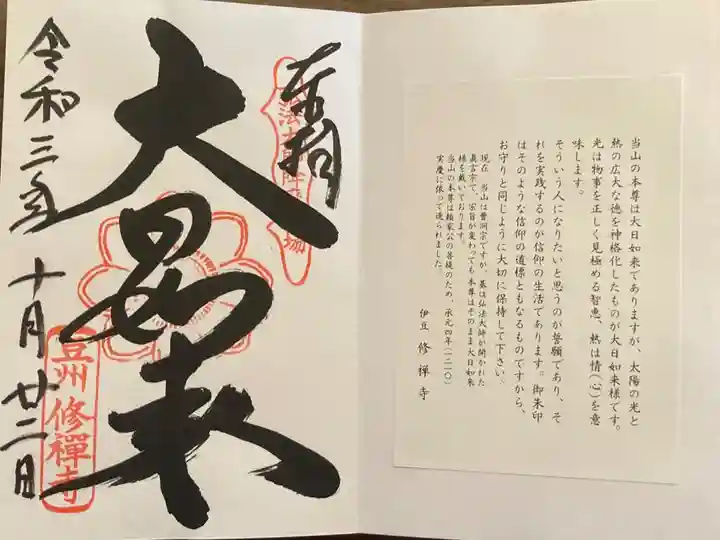 当山の本尊は大日如来でありますが、太陽の光と
熱の広大な徳を神格化したものが大日如来様です。
光は物事を正しく見極める智恵、熱は情(心)を意
味します。
そういう人になりたいと思うのが誓願であり、そ
れを実践するのが信仰の生活であります。御朱印
はそのような信仰の道標ともなるものですから、
お守りと同じように大切に保持して下さい。
現在、当山は曹洞宗ですが、基は弘法大師が開かれた
眞言宗で、宗旨が変わっても本尊はそのまま大日如来
様を戴いております。
当山の本尊は頼家公の菩提のため、承元四年(一二一〇)
実慶に依って造られました。
伊豆 修禅寺
奉拝
大日如来
令和三年 十月廿二日
豆州修禪寺